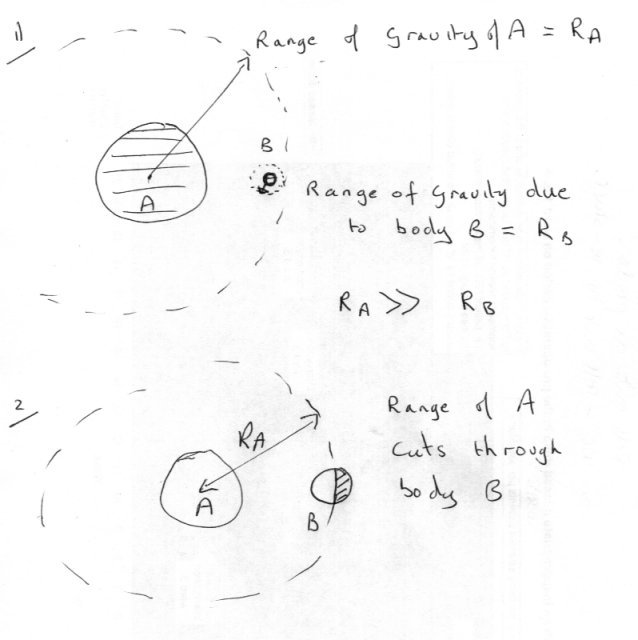 1)
Range of Gravity of A = RA
B
A
Range of Gravity due
to body B = RB
RA >> RB
2
Range of A
RA
Cuts through
A
body B
B